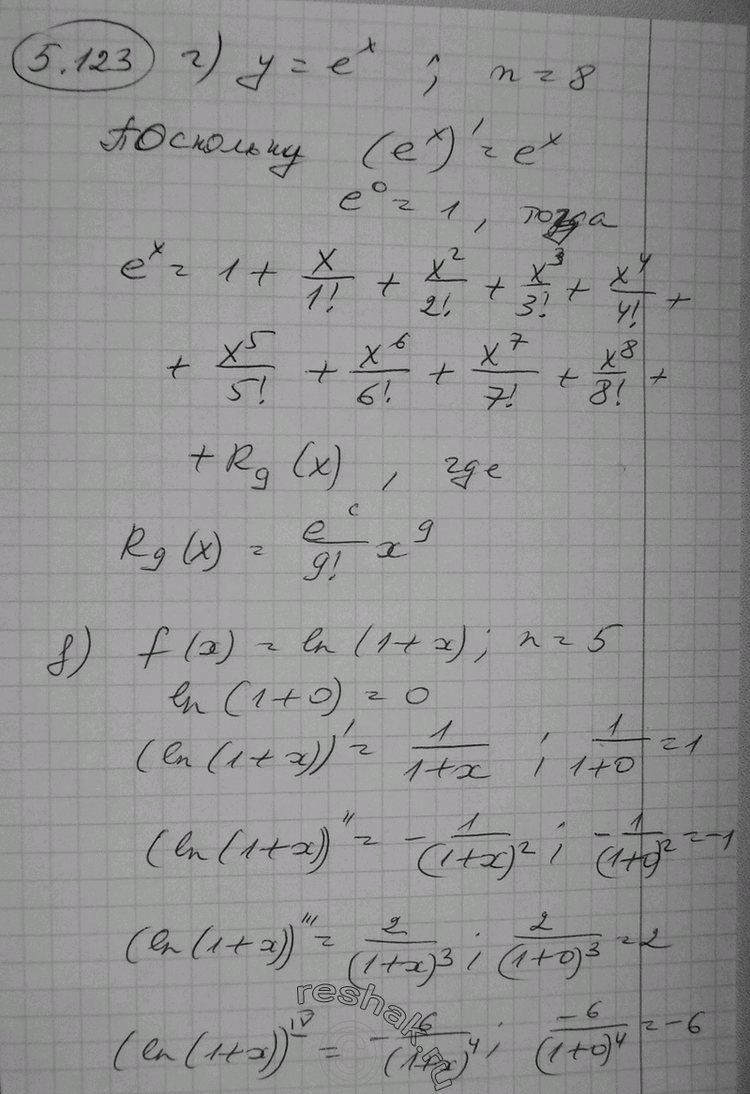 5.123 г) y = e^x ; n = 8
Поскольку (e^x)' = e^x
e^0 = 1, тогда
e^x = 1 + x/1! + x^2/2! + x^3/3! + x^4/4! +
+ x^5/5! + x^6/6! + x^7/7! + x^8/8! +
+ R_9 (x) , где
R_9 (x) = e^c/9! x^9
д) f(x) = ln (1+x); n = 5
ln (1+0) = 0
(ln (1+x))' = 1/(1+x) ; 1/(1+0) = 1
(ln (1+x))'' = - 1/(1+x)^2 ; - 1/(1+0)^2 = -1
(ln (1+x))''' = 2/(1+x)^3 ; 2/(1+0)^3 = 2
(ln (1+x))^IV = - 6/(1+x)^4 ; -6/(1+0)^4 = -6
reshak.ru